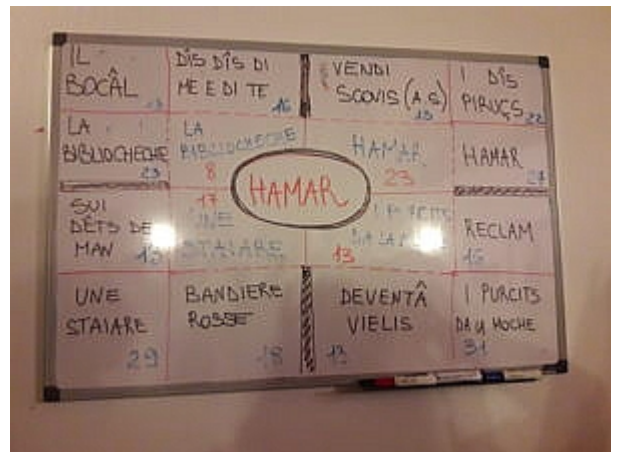 IL
BOCÂL
DÎS DÎS DI
ME E DI TE
16
VENDI
SCOVIS (A S)
13
I DÎS
PIRUÇS
22
LA
BIBLIOCHECHE
23
LA
BIBLIOCHECHE
8
HAMAR
23
HAMAR
27
HAMAR
SUI
DÊTS DE
MAN
17
UNE
STAIARE
13
RECLAM
15
UNE
STAIARE
29
BANDIERE
ROSSE
18
DEVENTÂ
VIELIS
13
I PURCITS
31